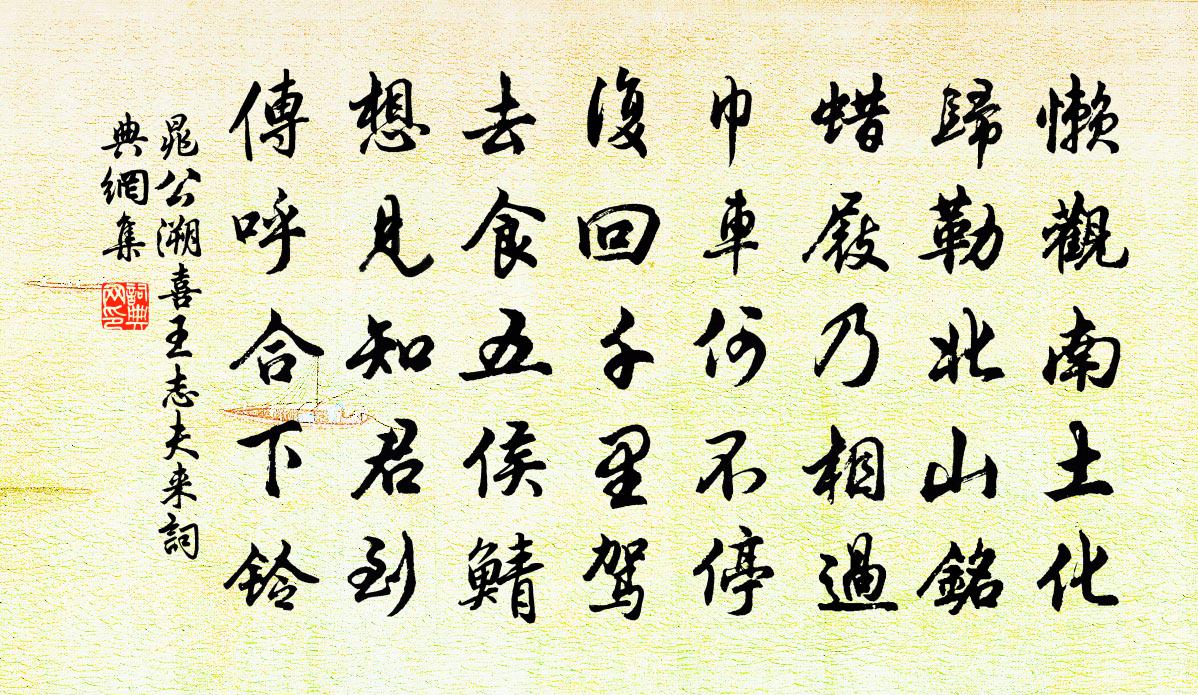 懶觀南土化
歸勒北山銘
蜡屐乃相過
巾車何不停
復回千里駕
去食五侯鯖
想見知君到
傳呼合下鈴
晁公溯喜王志夫来詞
典網集
詞典網印